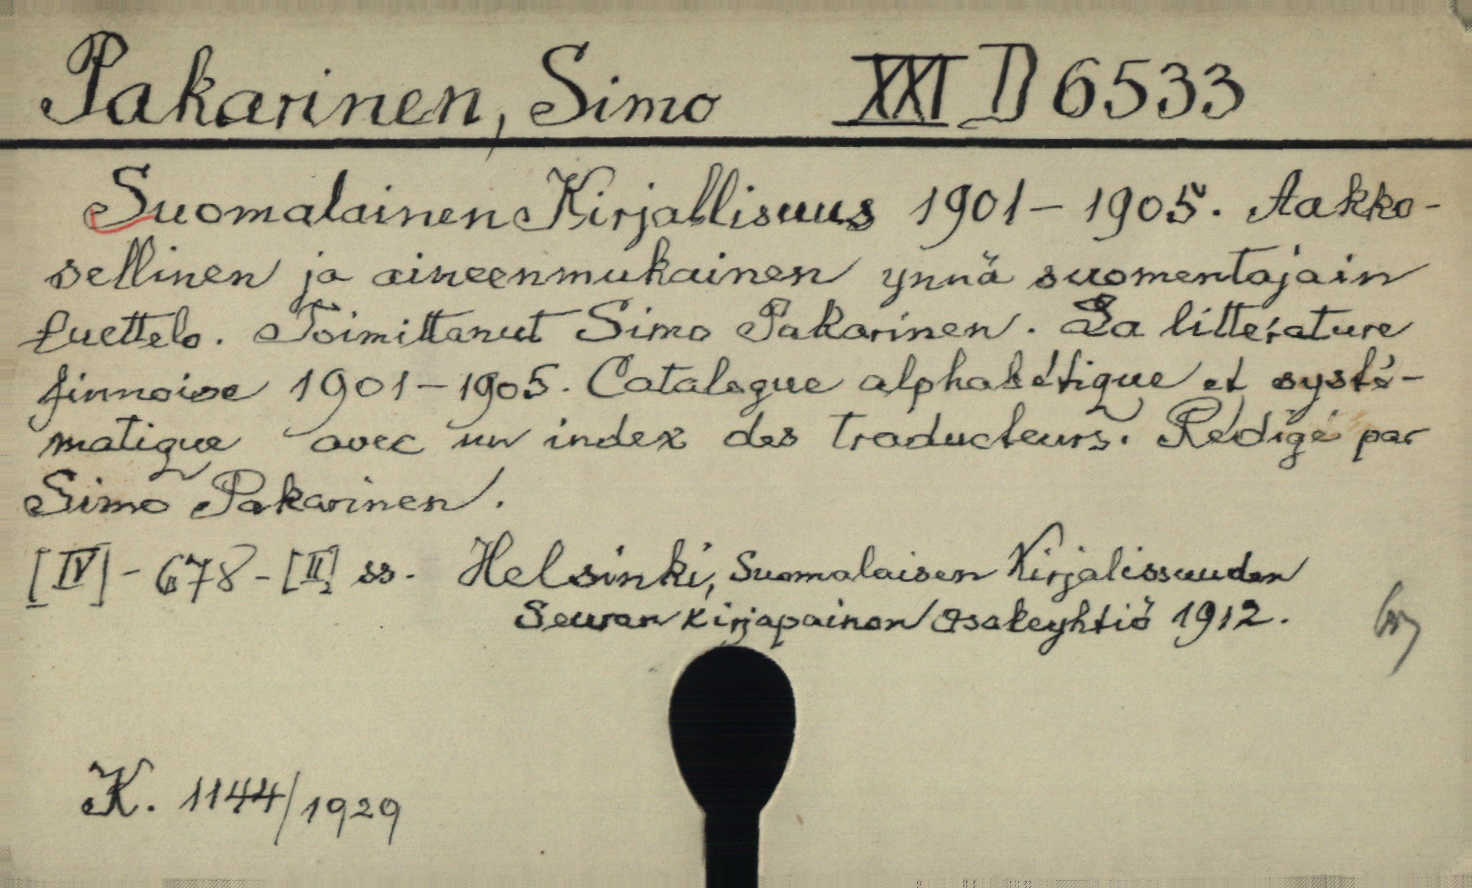 Pakarinen, Simo XXI D 6533
Suomalainen Kirjallisuus 1901-1905. Aakko-
sellinen ja aineenmukainen ynnä suomentajain
luettelo. Toimittanut Simo Pakarinen. La littérature
finnoise 1901-1905. Catalogue alphabétique et systé-
matique avec un index des traducteurs. Rédigé par
Simo Pakarinen.
[IV]-678-[II] ss. Helsinki, Suomalaisen Kirjalissuuden
Seuran Kirjapainon Osakeyhtiö 1912.
K. 1144/1929